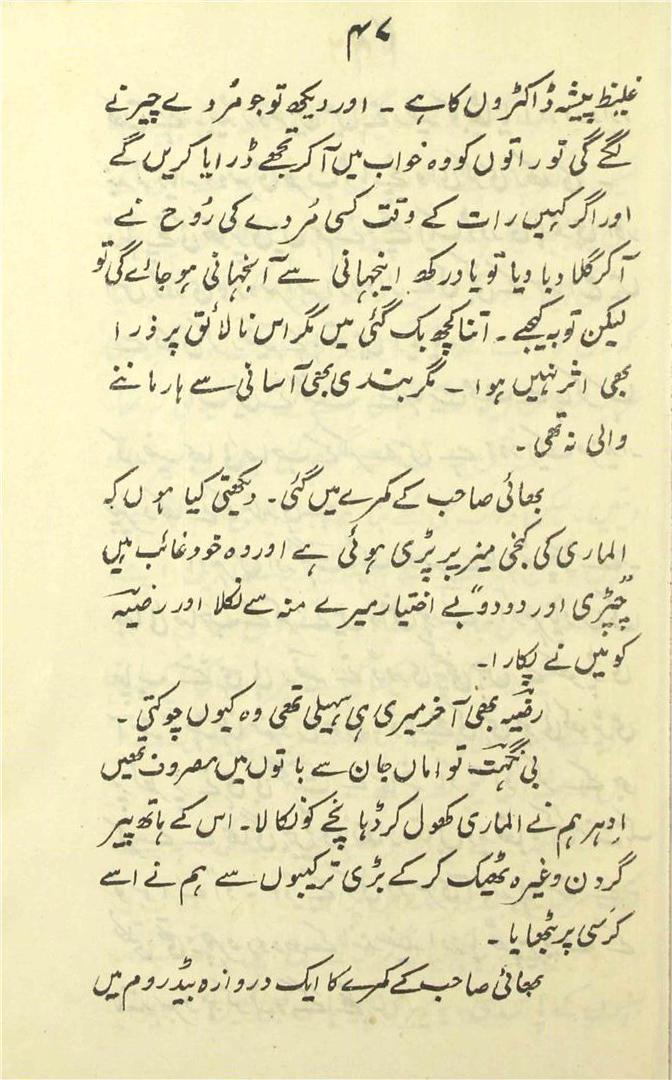 ۴۷
غلیظ پیشہ ڈاکٹروں کا ہے ۔ اور دیکھ تو جو مُردے چیرنے
لگے گی تو راتوں کو وہ خواب میں آ کر تجھے ڈرایا کریں گے
اور اگر کہیں رات کے وقت کسی مُردے کی رُوح نے
آکر گلا دبا دیا تو یاد رکھ اینجہانی سے آنجہانی ہو جائے گی تو
لیکن توبہ کیجے ۔ اتنا کچھ بک گئی میں مگر اس نالائق پر ذرا
بھی اثر نہیں ہوا ۔ مگر بندی بھی آسانی سے ہار ماننے
والی نہ تھی ۔
بھائی صاحب کے کمرے میں گئی ۔ دیکھتی کیا ہوں کہ
الماری کی کنجی میز پر پڑی ہوئی ہے اور وہ خود غائب ہیں
”چپڑی اور دو دو“ بے اختیار میرے منہ سے نکلا اور رضیہ
کو میں نے پکارا ۔
رضیہ بھی آخر میری ہی سہیلی تھی وہ کیوں چوکتی ۔
بی نگہت تو اماں جان سے باتوں میں مصروف تھیں
اِدہر ہم نے الماری کھول کر ڈہانچے کو نکالا ۔ اس کے ہاتھ پیر
گردن وغیرہ ٹھیک کر کے بڑی ترکیبوں سے ہم نے اسے
کرسی پر بٹھایا ۔
بھائی صاحب کے کمرے کا ایک دروازہ بیڈ روم میں